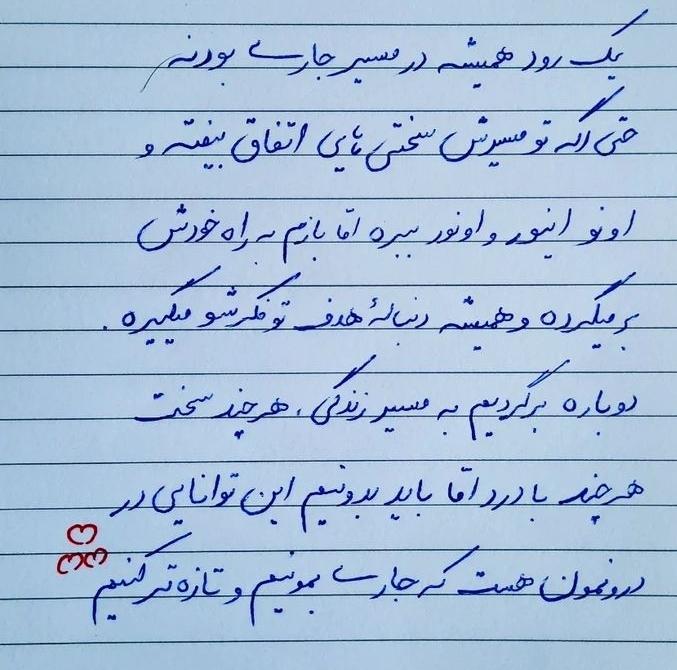 یک رود همیشه در مسیر جاری بودنه
حتی اگه تو مسیرش سختی هایی اتفاق بیفته و
اونو اینور و اونور ببره اما بازم به راه خودش
برمیگرده و همیشه دنبالهٔ هدف تو فکرشو میگیره .
دوباره برگردیم به مسیر زندگی ، هرچند سخت
هرچند با درد اما باید بدونیم این توانایی در
درونمون هست که جاری بمونیم و تازه تر کنیم